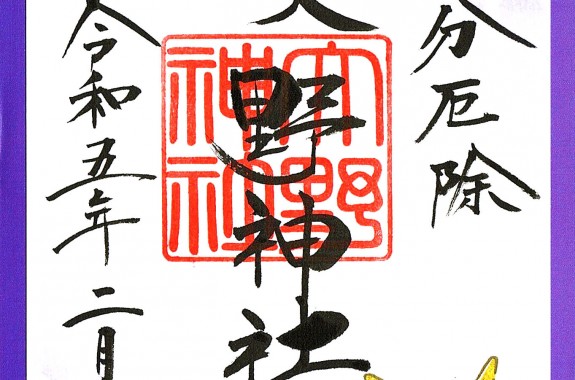 分厄除
大野神社
大野神社
令和五年二月